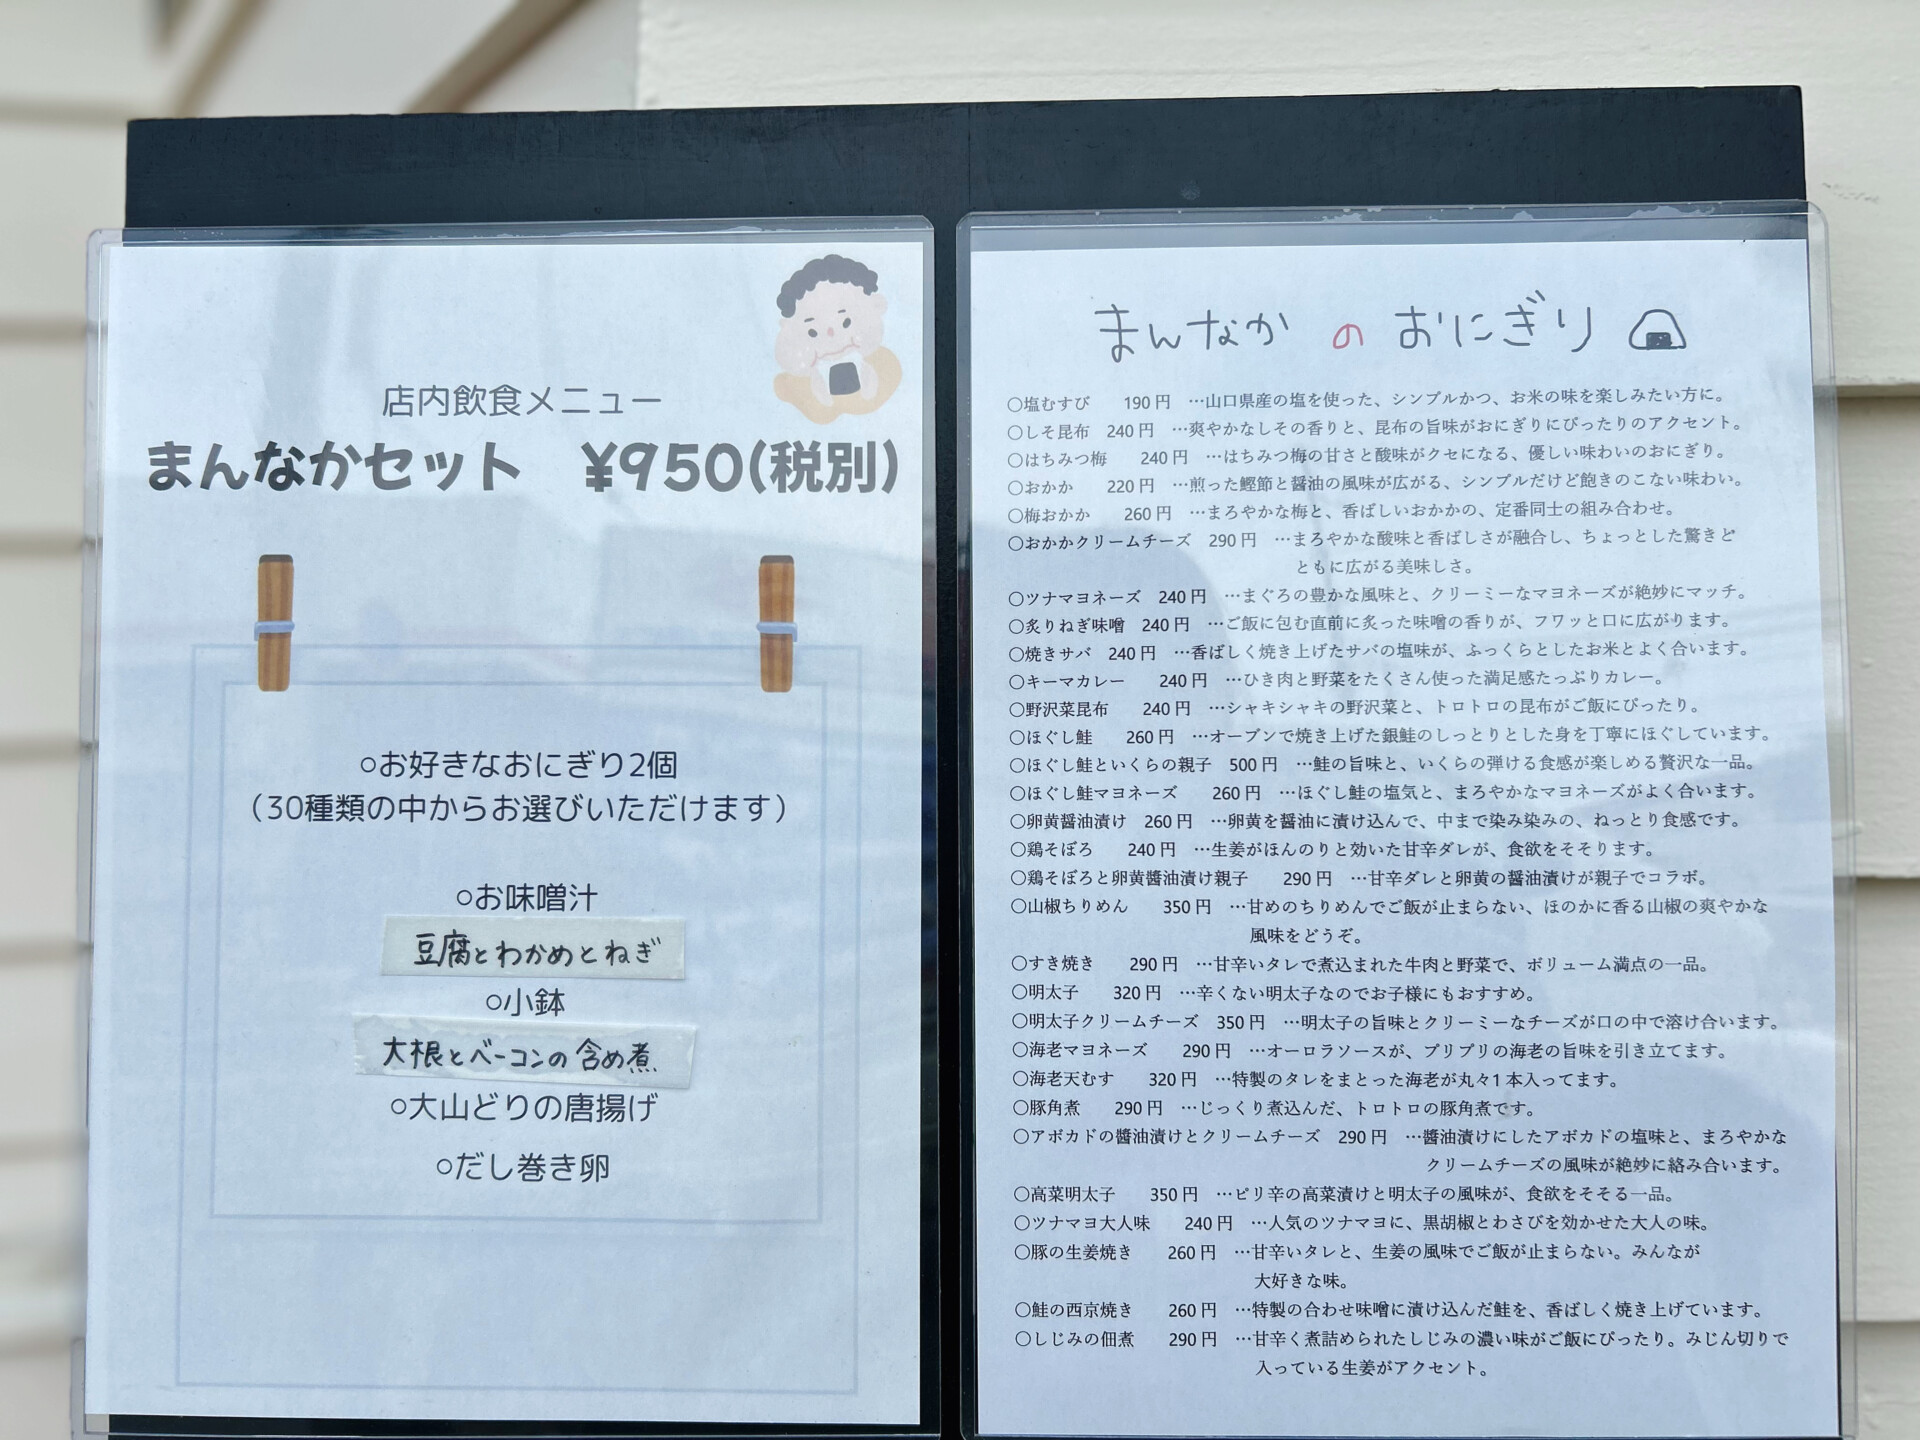 店内飲食メニュー
まんなかセット ¥950(税別)
○お好きなおにぎり2個
（30種類の中からお選びいただけます）
○お味噌汁
豆腐とわかめとねぎ
○小鉢
大根とベーコンの含め煮
○大山どりの唐揚げ
○だし巻き卵
まんなかのおにぎり
○塩むすび 190円 …山口県産の塩を使った、シンプルかつ、お米の味を楽しみたい方に。
○しそ昆布 240円 …爽やかなしその香りと、昆布の旨味がおにぎりにぴったりのアクセント。
○はちみつ梅 240円 …はちみつ梅の甘さと酸味がクセになる、優しい味わいのおにぎり。
○おかか 220円 …煎った鰹節と醤油の風味が広がる、シンプルだけど飽きのこない味わい。
○梅おかか 260円 …まろやかな梅と、香ばしいおかかの、定番同士の組み合わせ。
○おかかクリームチーズ 290円 …まろやかな酸味と香ばしさが融合し、ちょっとした驚きと
ともに広がる美味しさ。
○ツナマヨネーズ 240円 …まぐろの豊かな風味と、クリーミーなマヨネーズが絶妙にマッチ。
○炙りねぎ味噌 240円 …ご飯に包む直前に炙った味噌の香りが、フワッと口に広がります。
○焼きサバ 240円 …香ばしく焼き上げたサバの塩味が、ふっくらとしたお米とよく合います。
○キーマカレー 240円 …ひき肉と野菜をたくさん使った満足感たっぷりカレー。
○野沢菜昆布 240円 …シャキシャキの野沢菜と、トロトロの昆布がご飯にぴったり。
○ほぐし鮭 260円 …オーブンで焼き上げた銀鮭のしっとりとした身を丁寧にほぐしています。
○ほぐし鮭といくらの親子 500円 …鮭の旨味と、いくらの弾ける食感が楽しめる贅沢な一品。
○ほぐし鮭マヨネーズ 260円 …ほぐし鮭の塩気と、まろやかなマヨネーズがよく合います。
○卵黄醤油漬け 260円 …卵黄を醤油に漬け込んで、中まで染み染みの、ねっとり食感です。
○鶏そぼろ 240円 …生姜がほんのりと効いた甘辛ダレが、食欲をそそります。
○鶏そぼろと卵黄醤油漬け親子 290円 …甘辛ダレと卵黄の醤油漬けが親子でコラボ。
○山椒ちりめん 350円 …甘めのちりめんでご飯が止まらない、ほのかに香る山椒の爽やかな
風味をどうぞ。
○すき焼き 290円 …甘辛いタレで煮込まれた牛肉と野菜で、ボリューム満点の一品。
○明太子 320円 …辛くない明太子なのでお子様にもおすすめ。
○明太子クリームチーズ 350円 …明太子の旨味とクリーミーなチーズが口の中で溶け合います。
○海老マヨネーズ 290円 …オーロラソースが、プリプリの海老の旨味を引き立てます。
○海老天むす 320円 …特製のタレをまとった海老が丸々1本入ってます。
○豚角煮 290円 …じっくり煮込んだ、トロトロの豚角煮です。
○アボカドの醤油漬けとクリームチーズ 290円 …醤油漬けにしたアボカドの塩味と、まろやかな
クリームチーズの風味が絶妙に絡み合います。
○高菜明太子 350円 …ピリ辛の高菜漬けと明太子の風味が、食欲をそそる一品。
○ツナマヨ大人味 240円 …人気のツナマヨに、黒胡椒とわさびを効かせた大人の味。
○豚の生姜焼き 260円 …甘辛いタレと、生姜の風味でご飯が止まらない。みんなが
大好きな味。
○鮭の西京焼き 260円 …特製の合わせ味噌に漬け込んだ鮭を、香ばしく焼き上げています。
○しじみの佃煮 290円 …甘辛く煮詰められたしじみの濃い味がご飯にぴったり。みじん切りで
入っている生姜がアクセント。